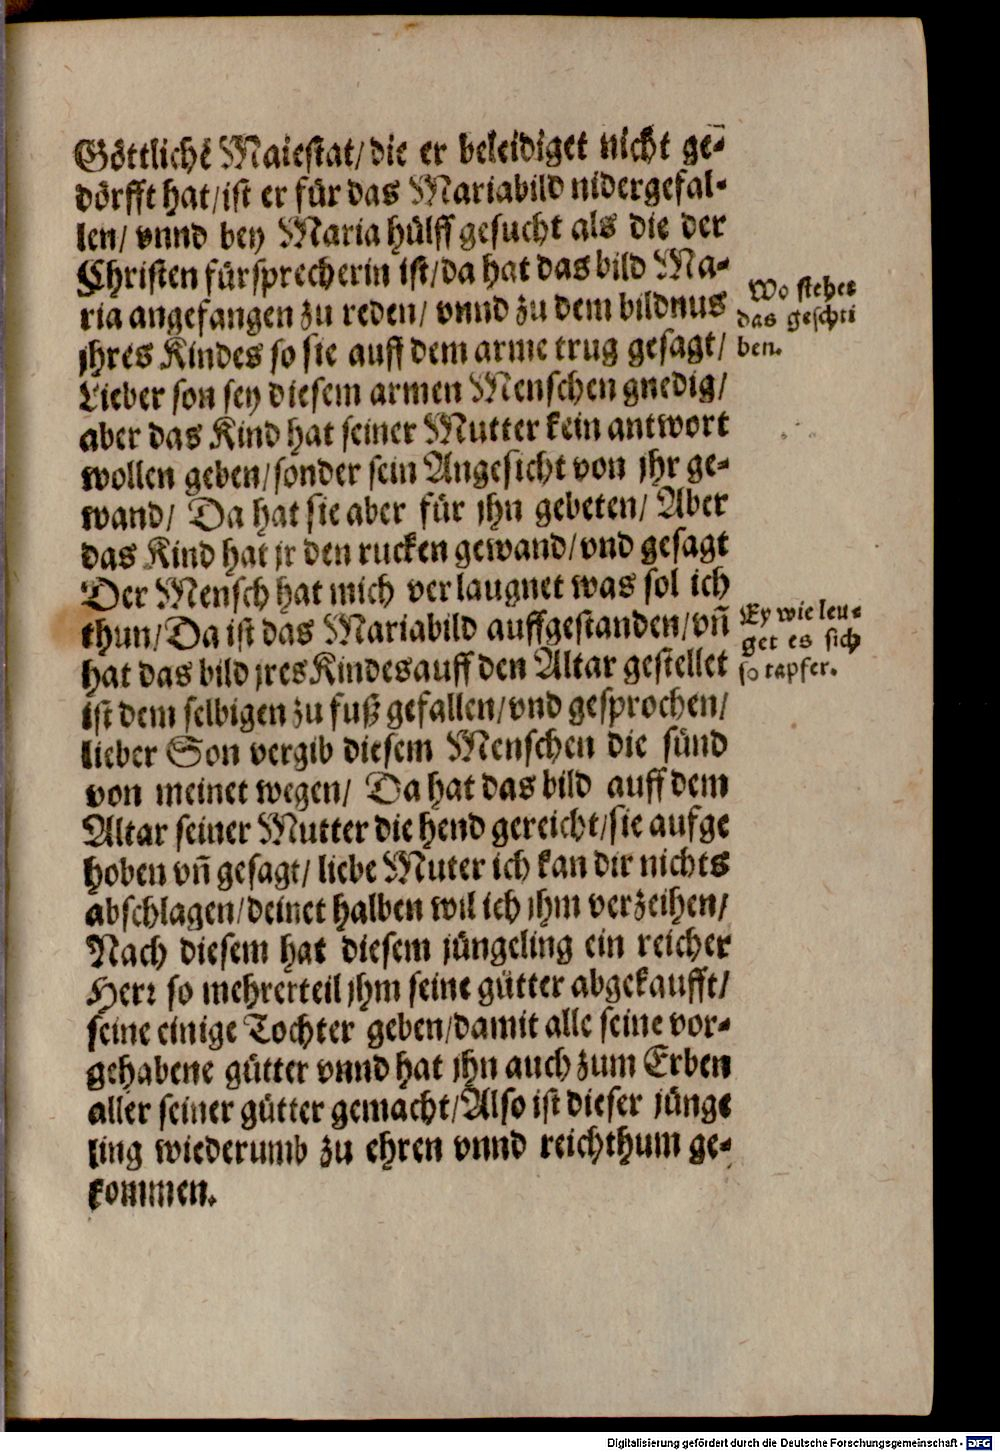 Göttlichē Maiestat/die er beleidiget nicht ge-
dörfft hat/ist er für das Mariabild nidergefal-
len/ vnnd bey Maria hülff gesucht als die der
Christen fürsprecherin ist/da hat das bild Ma-
ria angefangen zu reden/ vnnd zu dem bildnus
jhres Kindes so sie auff dem arme trug gesagt/
Lieber son sey diesem armen Menschen gnedig/
aber das Kind hat seiner Mutter kein antwort
wollen geben/sonder sein Angesicht von jhr ge-
wand/ Da hat sie aber für jhn gebeten/ Aber
das Kind hat jr den rucken gewand/vnd gesagt
Der Mensch hat mich verlaugnet was sol ich
thun/Da ist das Mariabild auffgestanden/vn̄
hat das bild jres Kindes auff den Altar gestellet
ist dem selbigen zu fuß gefallen/vnd gesprochen/
lieber Son vergib diesem Menschen die sünd
von meinet wegen/ Da hat das bild auff dem
Altar seiner Mutter die hend gereicht/sie aufge
hoben vn̄ gesagt/ liebe Muter ich kan dir nichts
abschlagen/deinet halben wil ich jhm verzeihen/
Nach diesem hat diesem jüngeling ein reicher
Herr so mehrerteil jhm seine gütter abgekaufft/
seine einige Tochter geben/damit alle seine vor-
gehabene gütter vnnd hat jhn auch zum Erben
aller seiner gütter gemacht/Also ist dieser jünge
ling wiederumb zu ehren vnnd reichthum ge-
kommen.
Wo stehet
das geschri
ben.
Ey wie leu-
get es sich
so tapfer.
Digitalisierung gefördert durch die Deutsche Forschungsgemeinschaft - DFG